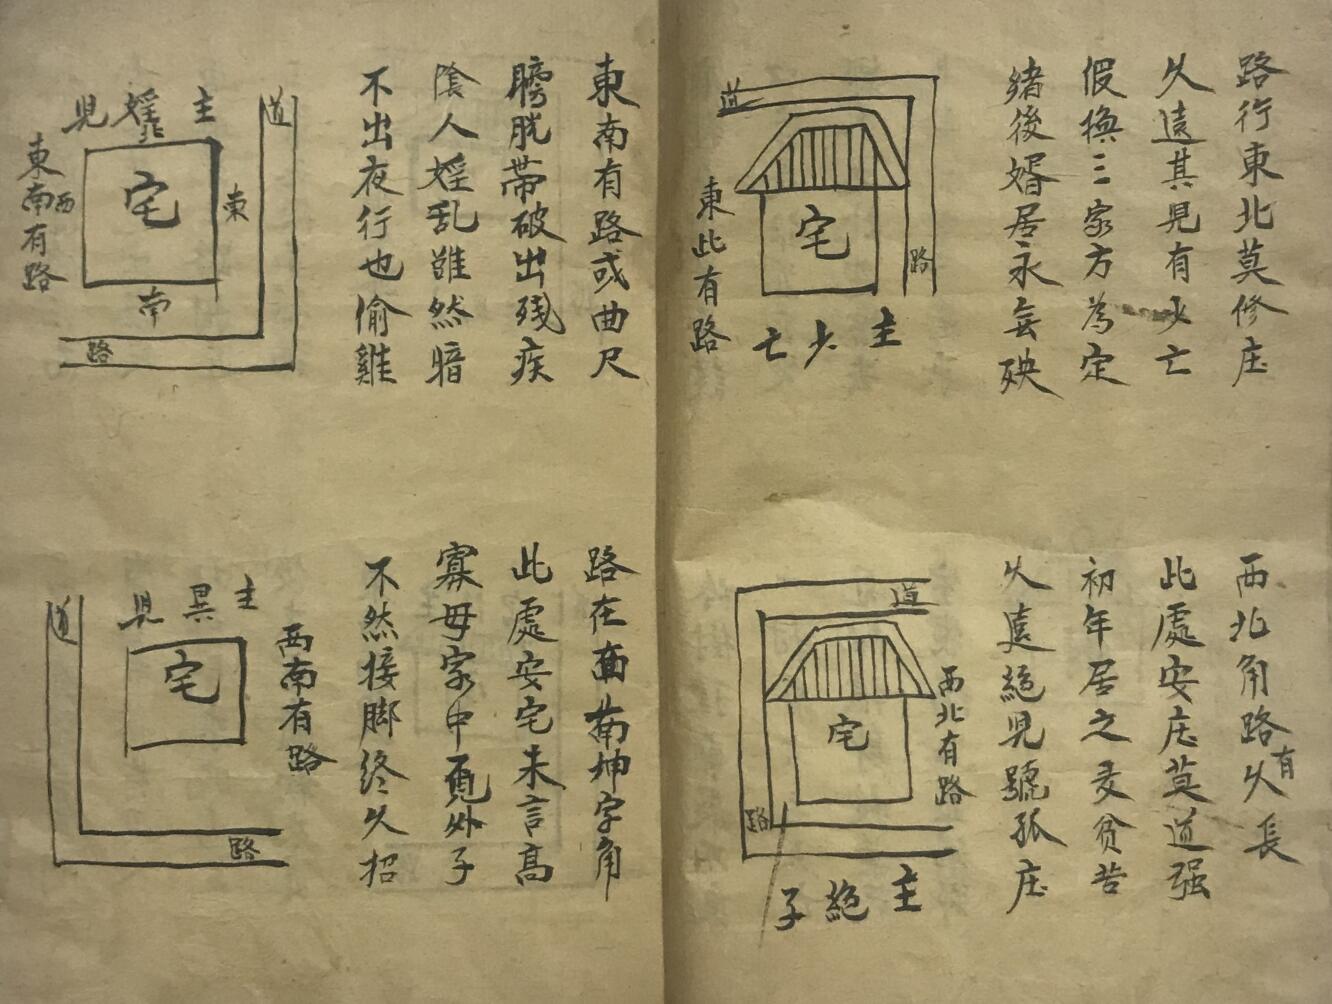 路行東北莫修庄
久遠其見有少亡
假換三家方為定
緒後婿居永無殃
道
路
宅
東此有路
主少亡
西北角路有久長
此處安庄莫道强
初年居之麦貧苦
久遠絕見號孤庄
道
路
宅
西北有路
主絕子
東南有路或曲尺
膀胱帶破出殘疾
陰人婬乱雖然暗
不出夜行也偷雞
道
路
主婬見
北
宅
東
南
西
東南有路
路在西南坤字角
此處安宅未言高
寡母家中覓外子
不然接脚終久招
西南有路
主異見
宅
道
路